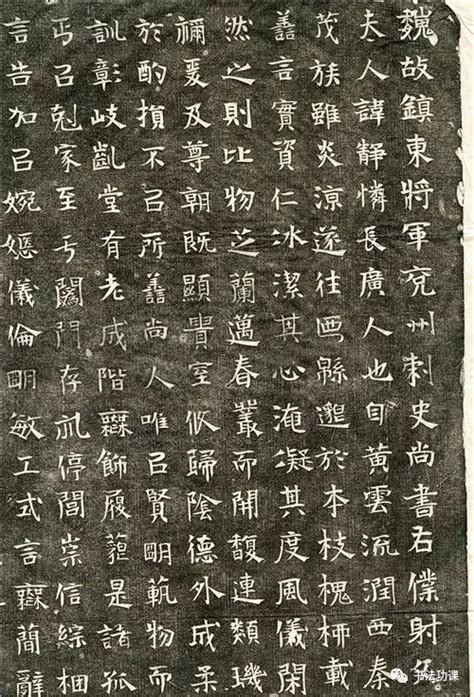 魏故鎮東將軍兗州刺史尚書右僕射
夫人諱靜憐長廣人也自黃雲流潤西秦
茂族雖炎涼遂往西縣邈於本枝槐柳載
善言實資仁冰潔其心淹凝其度風儀閑
然之則比物芝蘭邁春叢而開馥連類璣
禰爰及尊朝既顯貴室攸歸陰德外成柔
於酌損不以所善尚人唯以賢明軌物而
訓彰岐凱堂有老成階 飾履 是諸孤
以剋家至亏闔門存 停閭崇信綜梱
言告加以婉嫕儀倫明敏工式言 蘭辭
书法功课